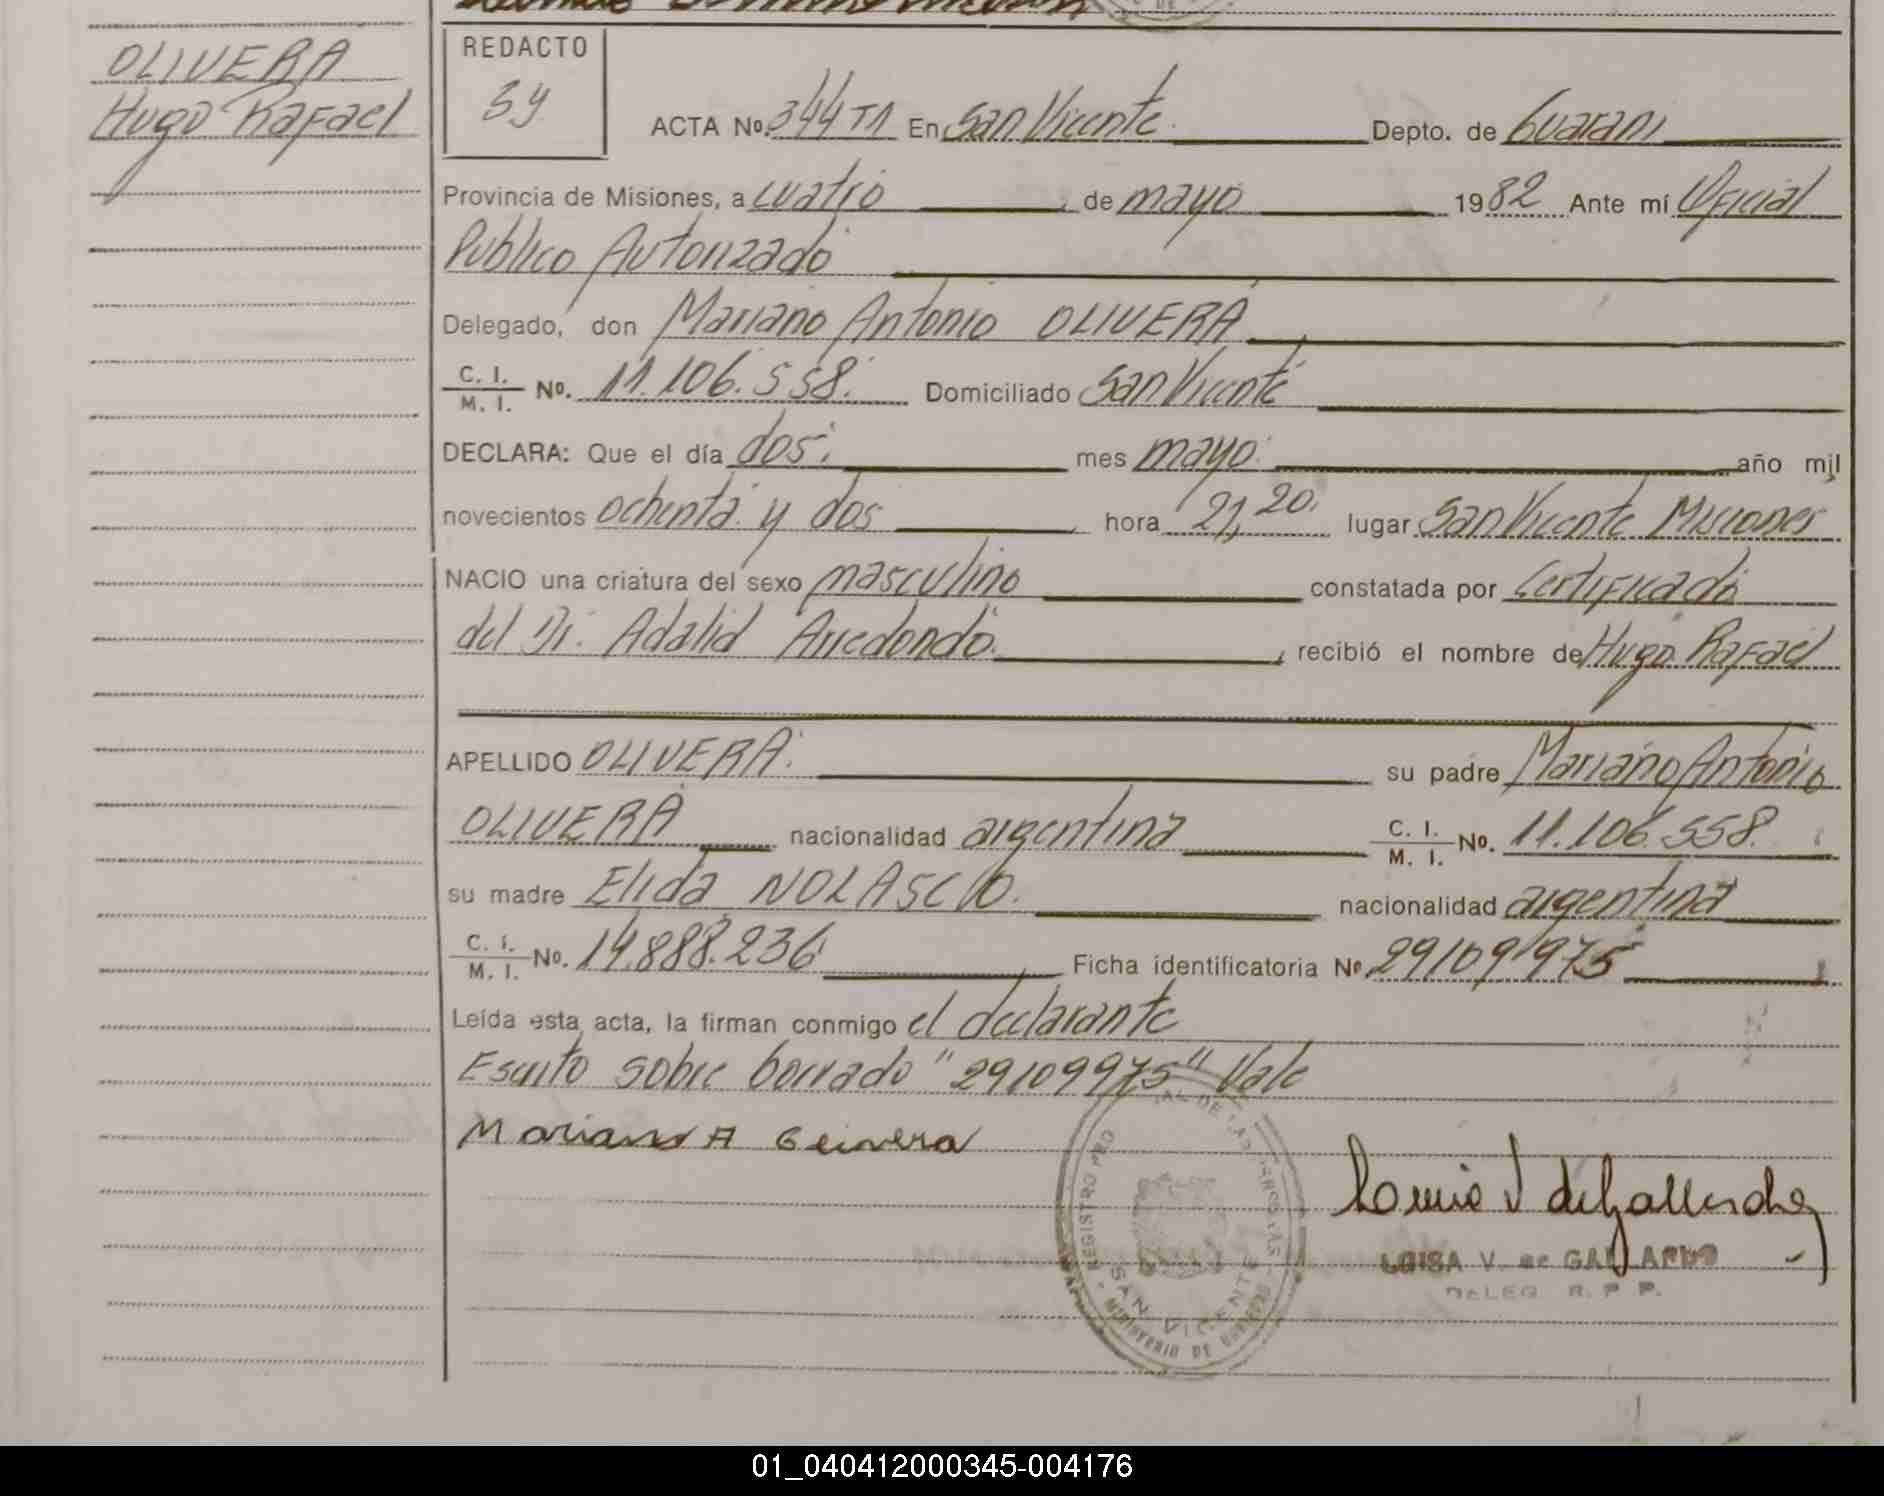 OLIVERA
Hugo Rafael
REDACTO
ACTA Nº. 344 T1 En San Vicente Depto. de Guarani
Provincia de Misiones, a cuatro de mayo 1982 Ante mí Oficial
Publico Autorizado
Delegado, don Mariano Antonio OLIVERA
C. I. / M. I. Nº. 11.106.558. Domiciliado San Vicente
DECLARA: Que el día dos. mes mayo. año mil
novecientos ochenta y dos hora 21,20. lugar San Vicente Misiones
NACIO una criatura del sexo masculino constatada por Certificado
del Dr. Adalid Arredondo. , recibió el nombre de Hugo Rafael
APELLIDO OLIVERA. su padre Mariano Antonio
OLIVERA nacionalidad argentina C. I. / M. I. Nº. 11.106.558.
su madre Elida NOLASCO. nacionalidad argentina
C. I. / M. I. Nº. 14.888.236 Ficha identificatoria Nº 29109975
Leída esta acta, la firman conmigo el declarante
Escrito sobre borrado "29109975" Vale
Mariano A Olivera
REGISTRO PRO AL DE LAS PERSONAS
SAN VICENTE
MINISTERIO DE GOBIERNO
LUISA V. de GALLARDO
DELEG. R. P. P.
01_040412000345-004176